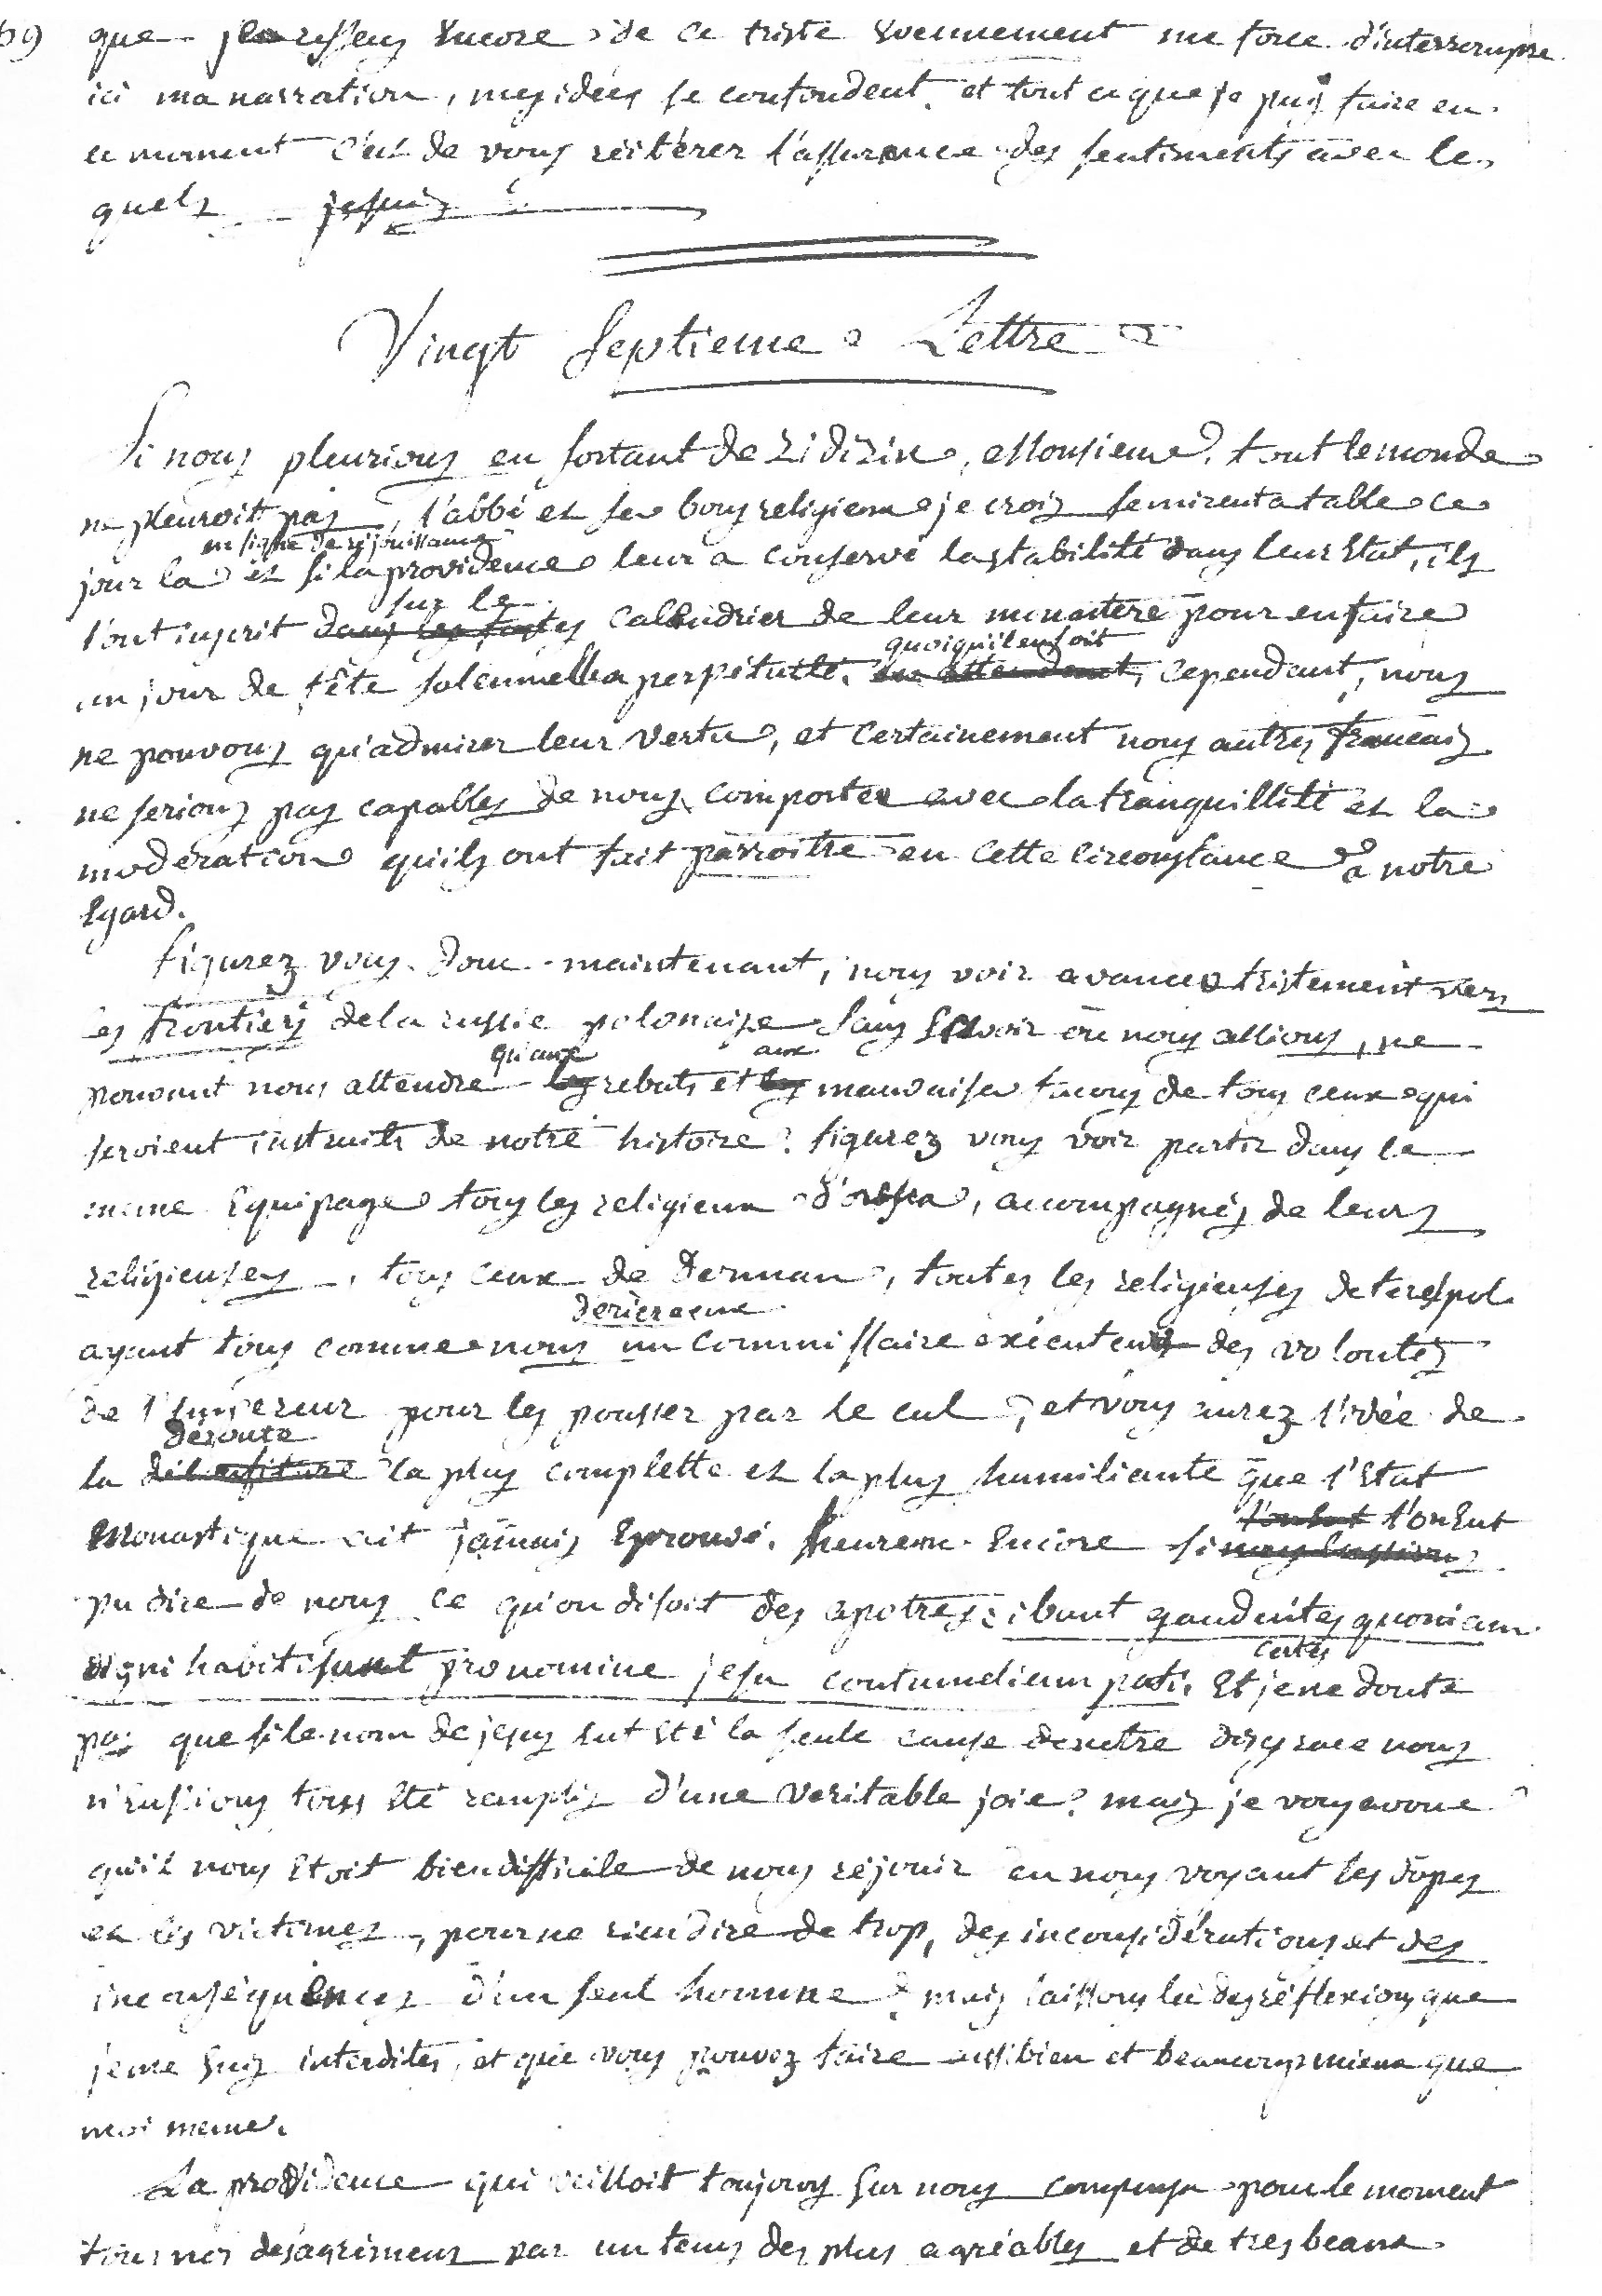 69 que je ressens encore de ce triste evennement me force d'interrompre
ici ma narration, mes idées se confondent et tout ce que je puis faire en
ce moment c'est de vous réitérer l'assurance des sentiments avec les
quels je suis &c.
Vingt Septieme Lettre
Si nous pleurions en sortant de Zidizin, Monsieur, tout le monde
ne pleuroit pas, l'abbé et ses bons religieux je crois se mirent a table ce
jour la en signe de réjouissance et si la providence leur a conservé la stabilité dans leur Etat, ils
l'ont inscrit dans les fastes sur le calendrier de leur monastere pour en faire
un jour de fête solennelle a perpétuité. en attendant, quoiqu'il en soit cependant, nous
ne pouvons qu'admirer leur vertu, et certainement nous autres francais
ne serions pas capables de nous comporter avec la tranquillité et la
moderation qu'ils ont fait parroitre en cette circonstance a notre
Egard.
figurez vous donc maintenant, nous voir avancer tristement vers
les frontiers de la russie polonaise sans scavoir ou nous allions, ne
pouvant nous attendre les qu'aux rebuts et les aux mauvaises facons de tous ceux qui
seroient instruits de notre histoire? figurez vous voir partir dans le
meme Equipage tous les religieux d'orsa, accompagnés de leurs
religieuses, tous ceux de Derman, toutes les religieuses de terespol
ayant tous comme nous derriere eux un commissaire exécuteur des volontés
de l'Empereur pour les pousser par le cul, et vous aurez l'idée de
la déconfiture déroute la plus complette et la plus humiliante que l'Etat
Monastique ait jamais Eprouvé. heureux Encore si nous eussions l'on eut l'on Eut
pu dire de nous ce qu'on disoit des apotres: ibant gaudentes quoniam
digni habiti sunt pro nomine jesu contumeliam pati. Et certes je ne doute
pas que si le nom de jesus eut Eté la seule cause de notre disgrace nous
n'eussions tous Eté remplis d'une veritable joie? mais je vous avoue
qu'il nous Etoit bien difficile de nous réjouir en nous voyant les dupes
et les victimes, pour ne rien dire de trop, des inconsidérations et des
inconséquences d'un seul homme? mais laissons la des réflexions que
je me suis interdites, et que vous pouvez faire aussi bien et beaucoup mieux que
moi meme.
La providence qui veilloit toujours sur nous compensa pour le moment
tous nos desagrémens par un tems des plus agréables et de tres beaux